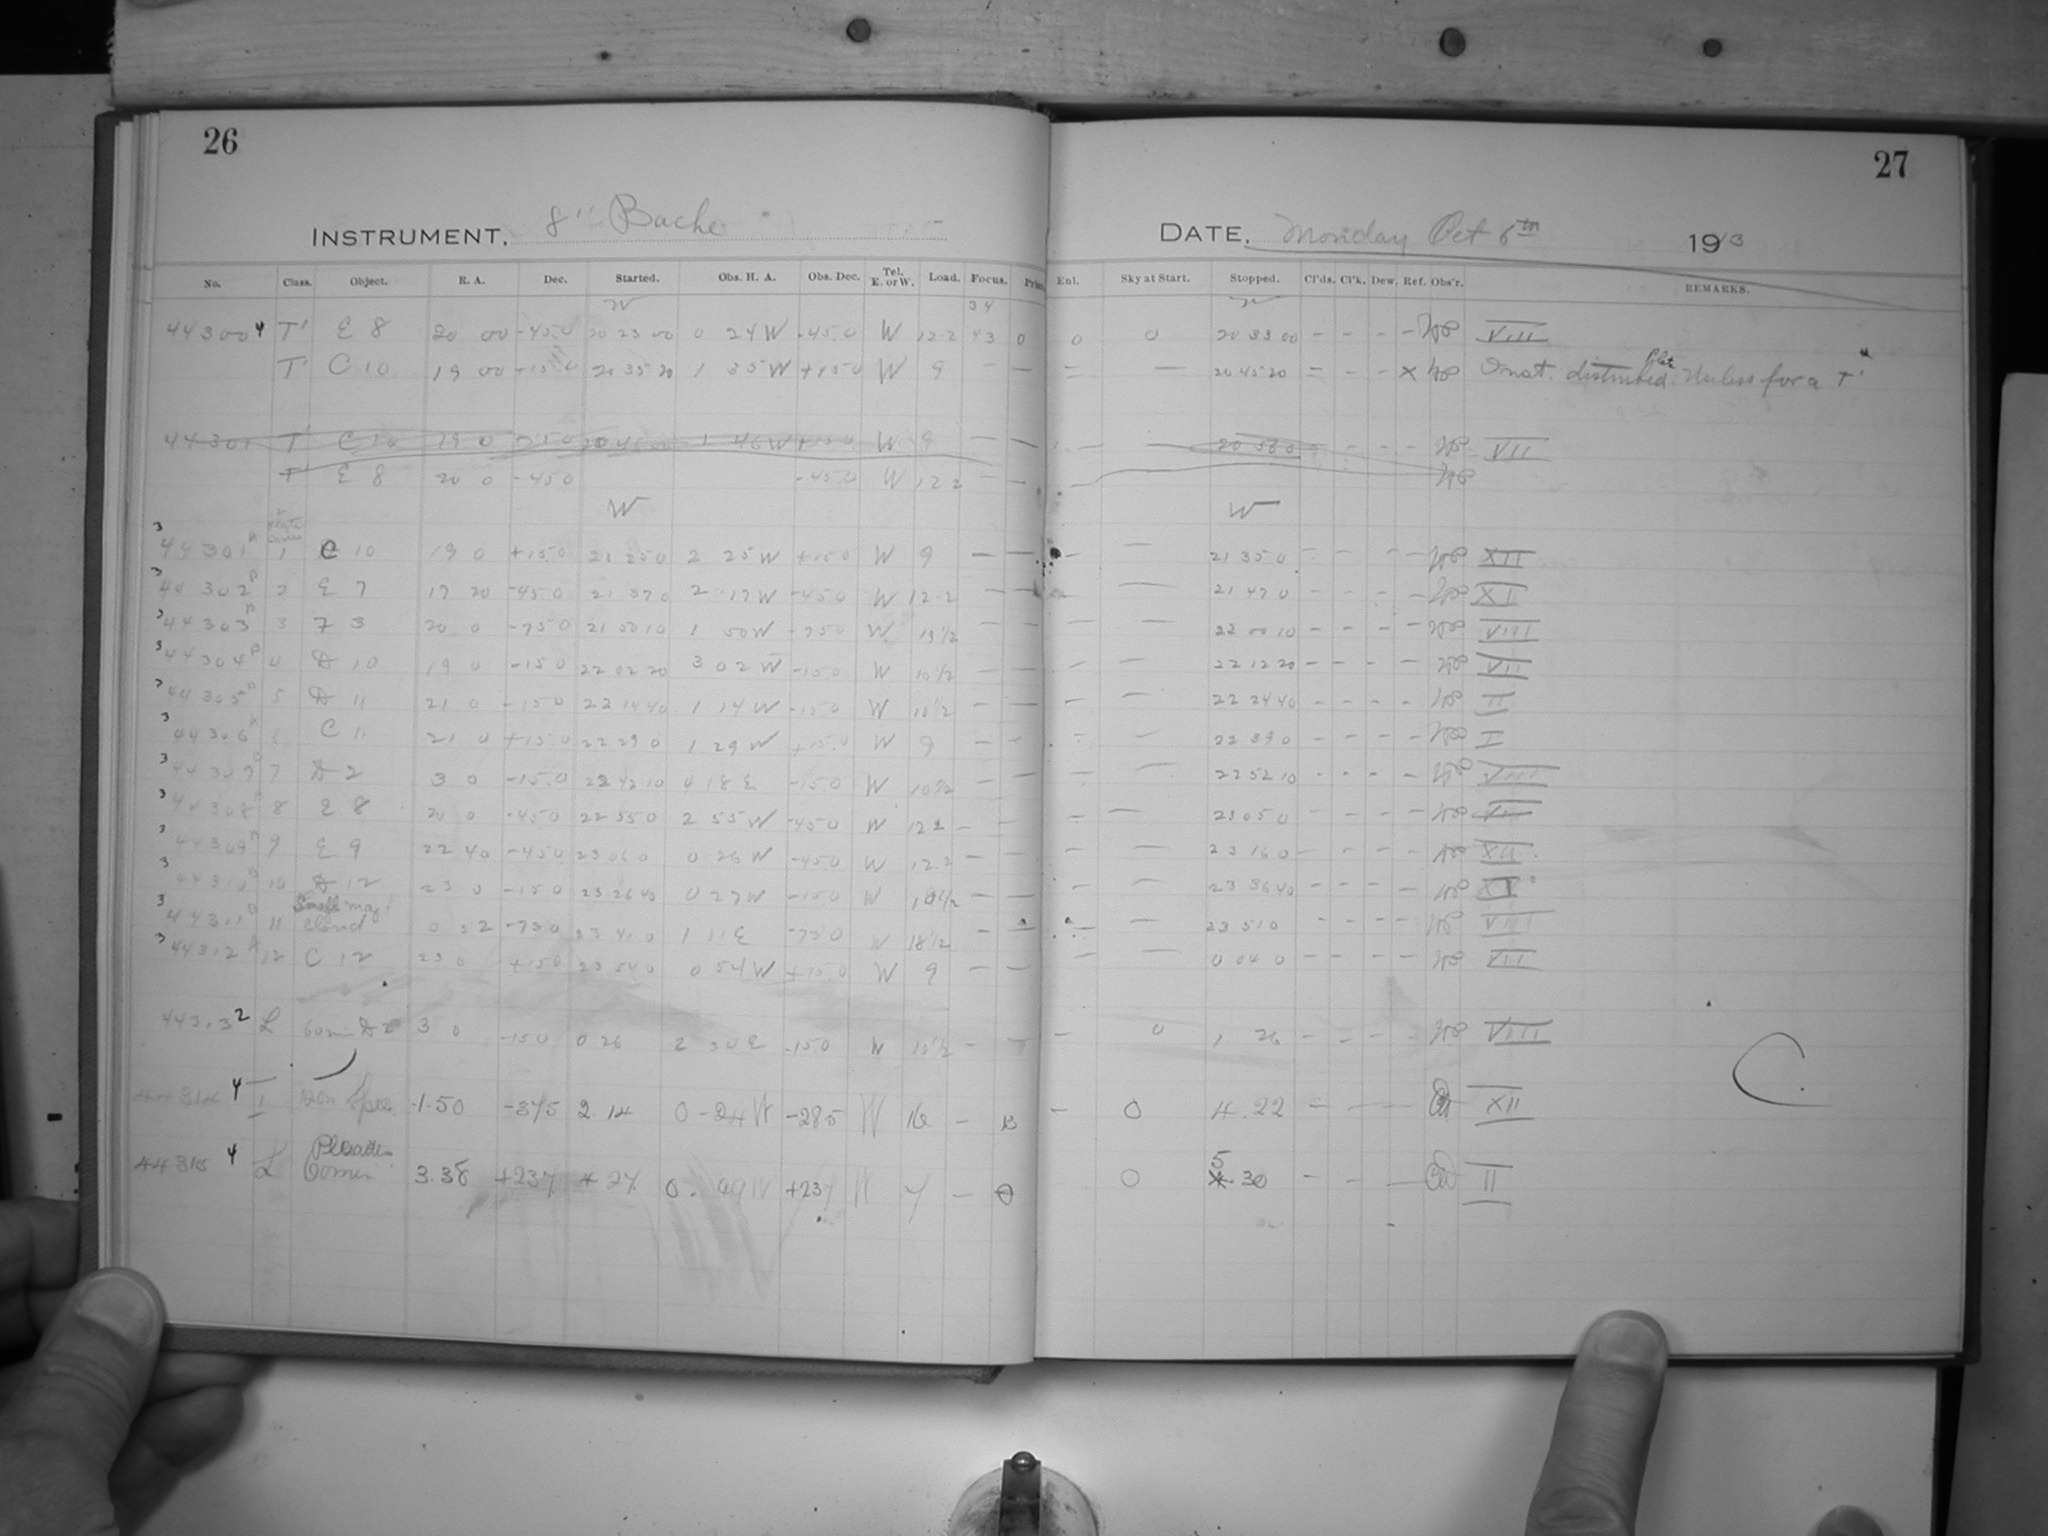 26
27
INSTRUMENT, 8" Bache
DATE, Monday Oct 6th 1913
No. Class. Object. R. A. Dec. Started. Obs. H. A. Obs. Dec. Tel. E. or W. Load. Focus. Enl. Sky at Start. Stopped. Cl'ds. Cl'k. Dew. Ref. Obs'r. REMARKS.
W 34 W
44300 4 T' E 8 20 00 -45.0 20 23 00 0 24 W -45.0 W 12.2 43 0 0 0 20 33 00 - - - - VIII
T' C 10 19 00 +15.0 20 35 20 1 35 W +15.0 W 9 - - - - 20 45 20 - - - X Inst. disturbed. Plate Useless for a T'
44301 T' C 10 19 0 1 46 W W 9 - - - - 20 56 0 - - - VII
T' E 8 20 0 -45.0 -45.0 W 12 2 - -
W W
3
44301 1 C 10 19 0 +15.0 21 25 0 2 25 W +15.0 W 9 - - - - 21 35 0 - - - - XII
3
44302 2 E 7 17 20 -45.0 21 37 0 2 17 W -45.0 W 12.2 - - - 21 47 0 - - - - XI
44303 3 F 3 20 0 -75.0 21 50 10 1 50 W -75.0 W - - - - 22 00 10 - - - - VIII
3
44304 4 D 10 19 0 -15.0 22 02 20 3 02 W -15.0 W 10 1/2 - - - - 22 12 20 - - - - VII
44305 5 D 11 21 0 -15.0 22 14 40 1 14 W -15.0 W 10 1/2 - - - - 22 24 40 - - - - II
3
44306 C 11 21 0 +15.0 22 29 0 1 29 W +15.0 W 9 - - - - 22 39 0 - - - - I
3
44307 7 D 2 3 0 -15.0 22 42 10 4 18 E -15.0 W 10 1/2 - - - - 22 52 10 - - - - VIII
3
44308 8 E 8 20 0 -45.0 22 55 0 2 55 W -45.0 W 12 2 - - - - 23 05 0 - - - -
3
44309 9 E 9 22 40 -45.0 23 06 0 0 26 W -45.0 W 12 2 - - - - 23 16 0 - - - - XII
3
44310 10 D 12 23 0 -15.0 23 26 40 0 27 W -15.0 W 10 1/2 - - - - 23 36 40 - - - -
3 Small mag.
44311 11 Cloud 0 52 -73.0 23 41 0 1 11 E -73.0 W - - - - 23 51 0 - - - - VIII
3
44312 12 C 12 23 0 +15.0 23 54 0 0 54 W +15.0 W 9 - - - - 0 04 0 - - - - VII
44313 2 L 60 min D 2 3 0 -15.0 0 26 2 34 E -15.0 W 10 1/2 - - - 0 1 26 - - - - VIII
C.
44314 4 I 1.50 2.14 0-24 W -28.5 W 16 - B - O 4.22 - - - XII
Pleiades
44315 4 L 60 min 3.38 +23.7 4 27 0.49 W +23.7 W 7 - O 5.30 - - - II